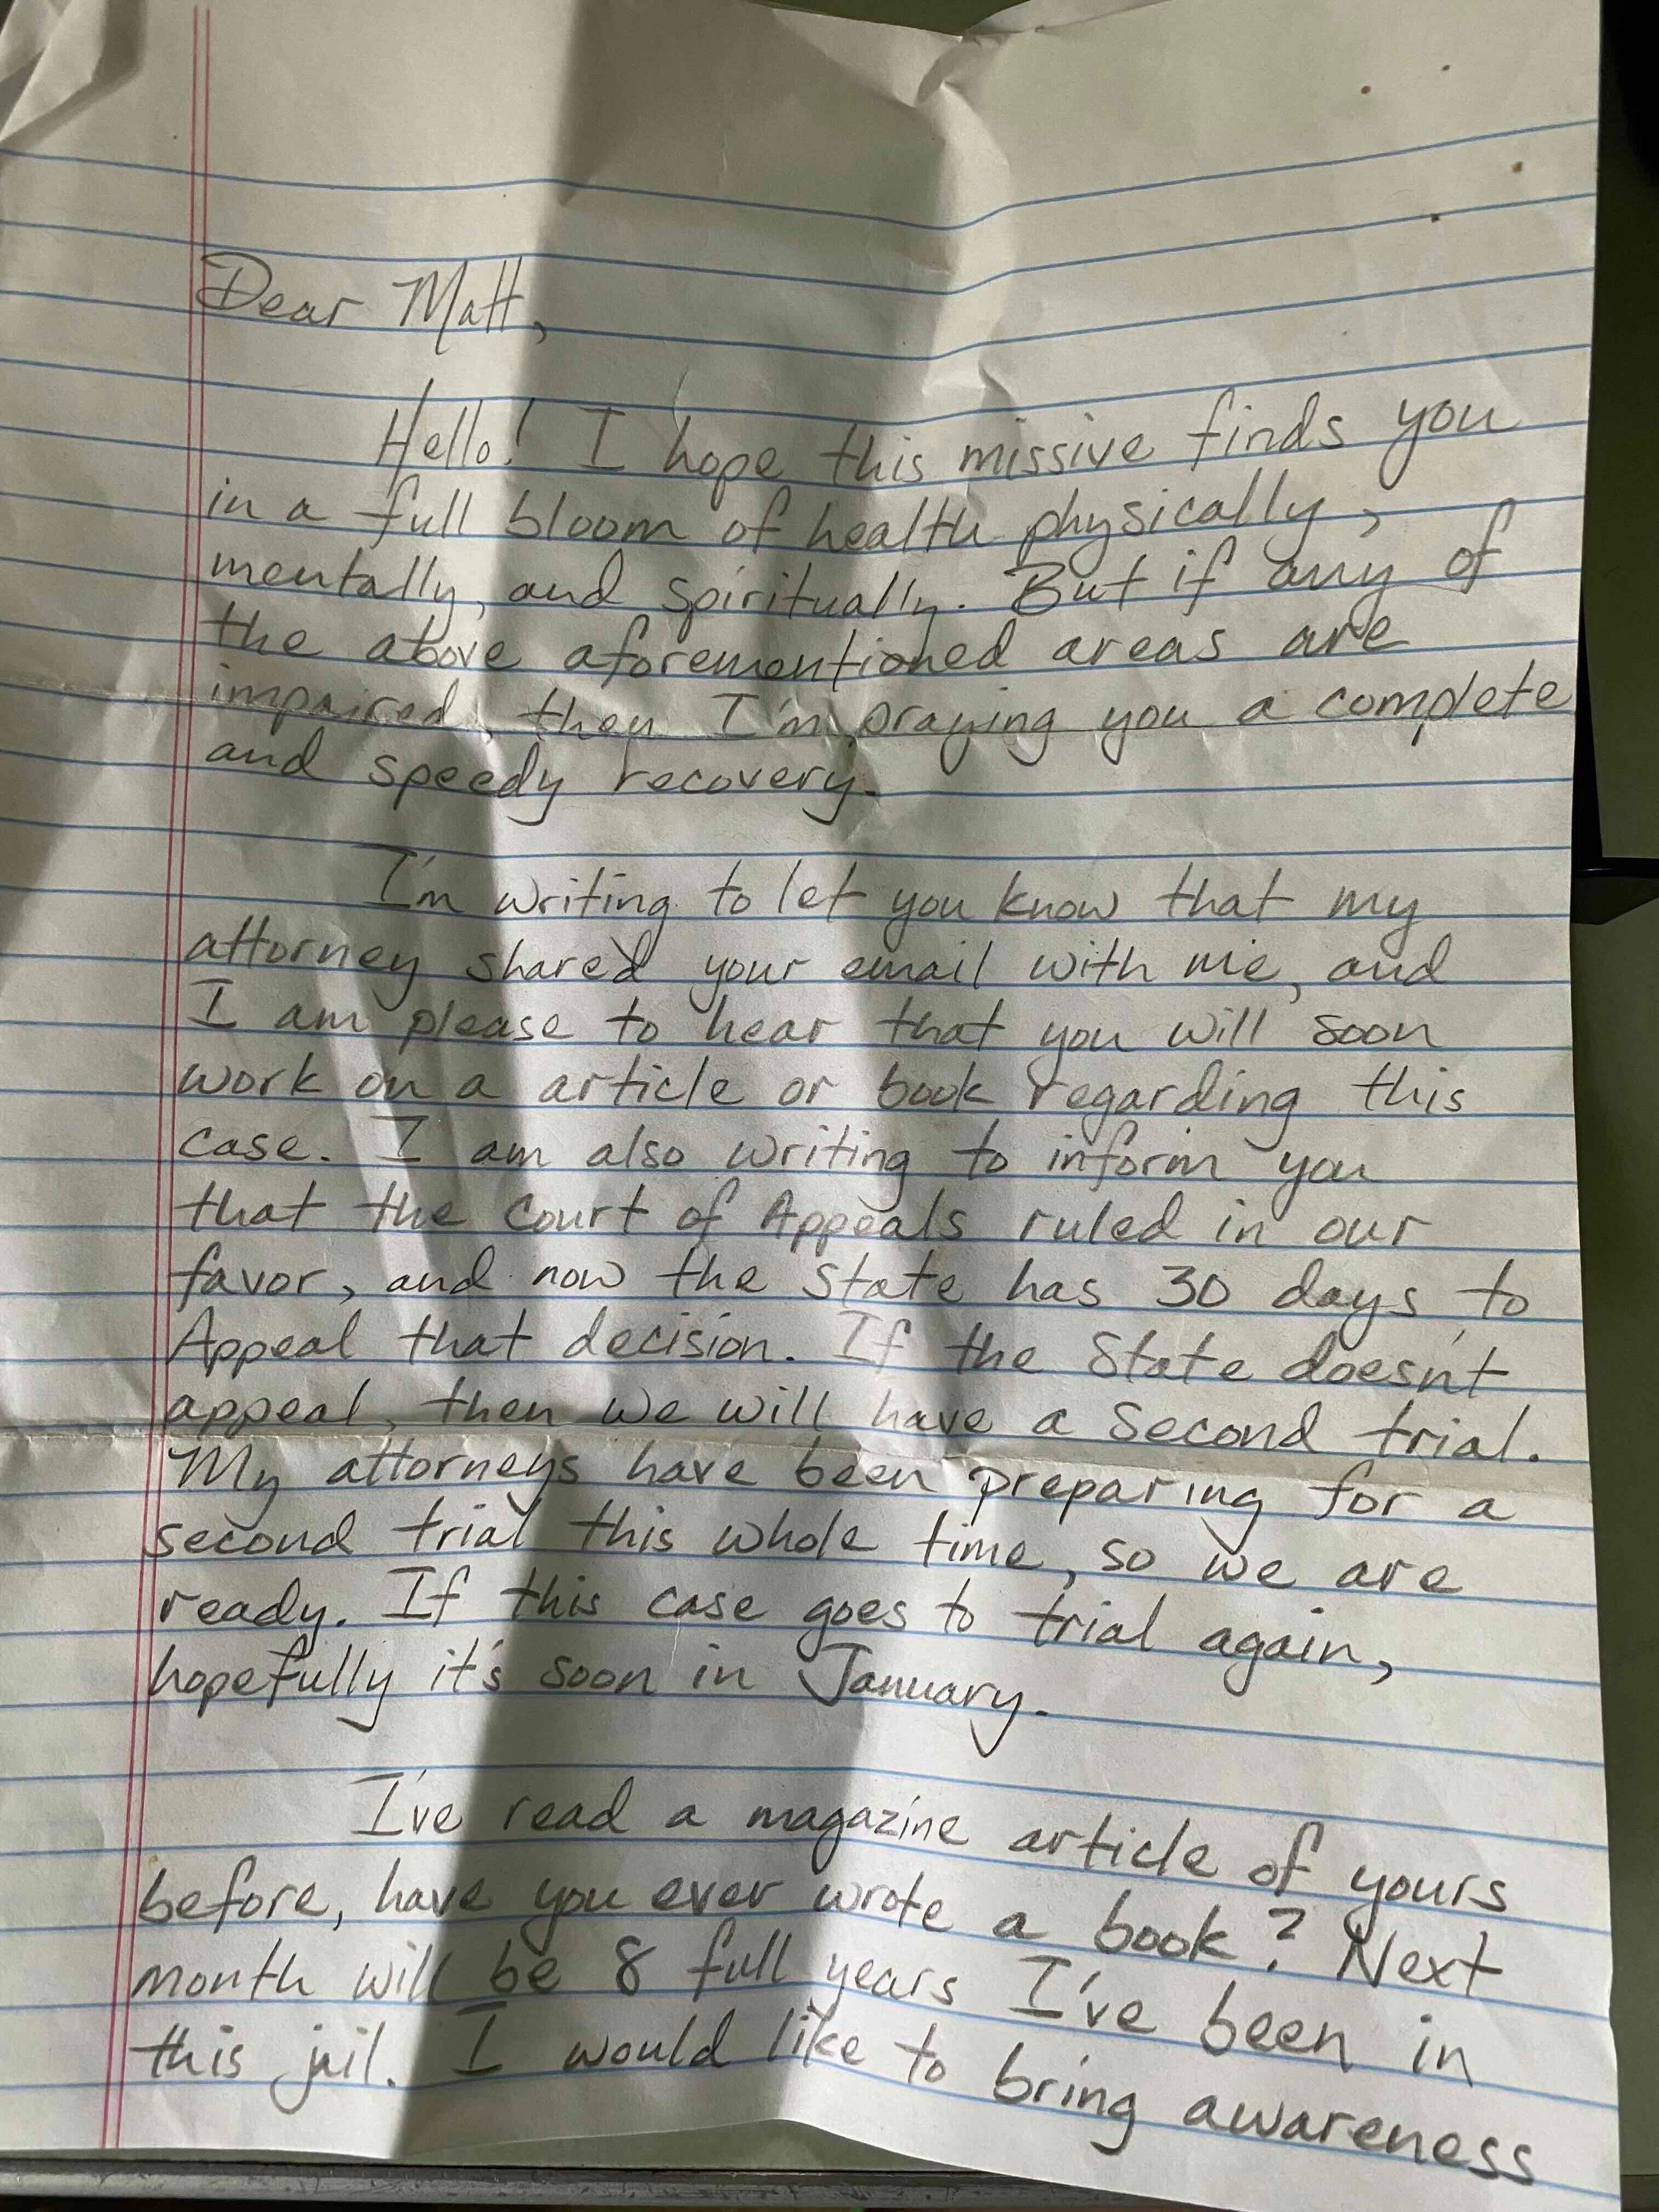 Dear Matt,
Hello! I hope this missive finds you
in a full bloom of health physically,
mentally, and spiritually. But if any of
the above aforementioned areas are
impaired, then I'm praying you a complete
and speedy recovery.
I'm writing to let you know that my
attorney shared your email with me, and
I am please to hear that you will soon
work on a article or book regarding this
case. I am also writing to inform you
that the Court of Appeals ruled in our
favor, and now the State has 30 days to
Appeal that decision. If the State doesn't
appeal, then we will have a second trial.
My attorneys have been preparing for a
second trial this whole time, so we are
ready. If this case goes to trial again,
hopefully it's soon in January.
I've read a magazine article of yours
before, have you ever wrote a book? Next
month will be 8 full years I've been in
this jail. I would like to bring awareness